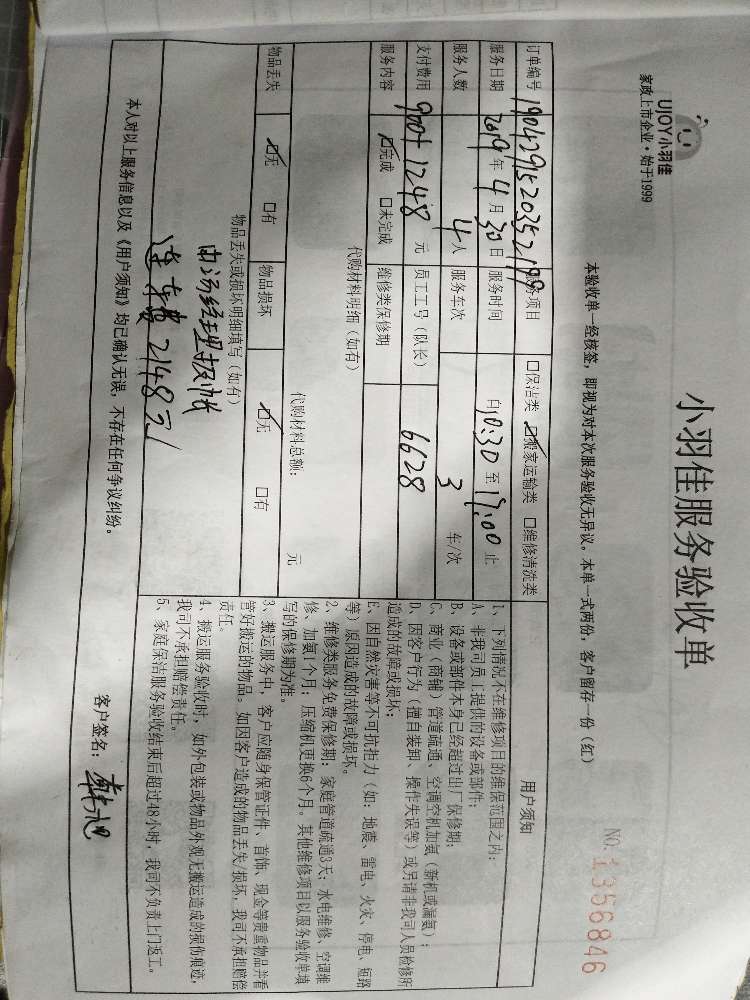 UJOY小羽佳
家政上市企业·始于1999
小羽佳服务验收单
NO:1356846
本验收单一经核签，即视为对本次服务验收无异议。本单一式两份，客户留存一份（红）
订单编号 1904291520352199 服务项目 口保洁类 ☑搬家运输类 口维修清洗类
服务日期 2019年4月30日 服务时间 自10:30至19:00止
服务人数 4人 服务车次 3 车/次
支付费用 900+1248 元 员工工号（队长） 6628
服务内容 ☑完成 口未完成 维修类保修期
代购材料明细（如有）
代购材料总额： 元
物品丢失 ☑无 口有 物品损坏 ☑无 口有
物品丢失或损坏明细填写（如有）
由汤经理报帐
2148元
用户须知
1、下列情况不在维修项目的维保范围之内：
A、非我司员工提供的设备或部件；
B、设备或部件本身已经超过出厂保修期；
C、商业（商铺）管道疏通、空调空机加氨（新机或漏氨）；
D、因客户行为（擅自装卸、操作失误等）或另请非我司人员检修所
造成的故障或损坏；
E、因自然灾害等不可抗拒力（如：地震、雷电、火灾、停电、短路
等）原因造成的故障或损坏。
2、维修类服务免费保修期：家庭管道疏通3天；水电维修、空调维
修、加氨1个月；压缩机更换6个月。其他维修项目以服务验收单填
写的保修期为准。
3、搬运服务中，客户应随身保管证件、首饰、现金等贵重物品并看
管好搬运的物品。如因客户造成的物品丢失/损坏，我司不承担赔偿
责任。
4、搬运服务验收时，如外包装或物品外观无搬运造成的损伤痕迹，
我司不承担赔偿责任。
5、家庭保洁服务验收结束后超过48小时，我司不负责上门返工。
本人对以上服务信息以及《用户须知》均已确认无误，不存在任何争议纠纷。
客户签名：